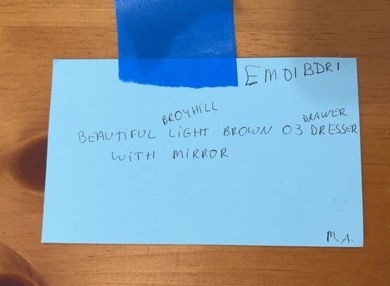 EM01BDR1
BROYHILL
DRAWER
BEAUTIFUL LIGHT BROWN 03 DRESSER
WITH MIRROR
M.A.